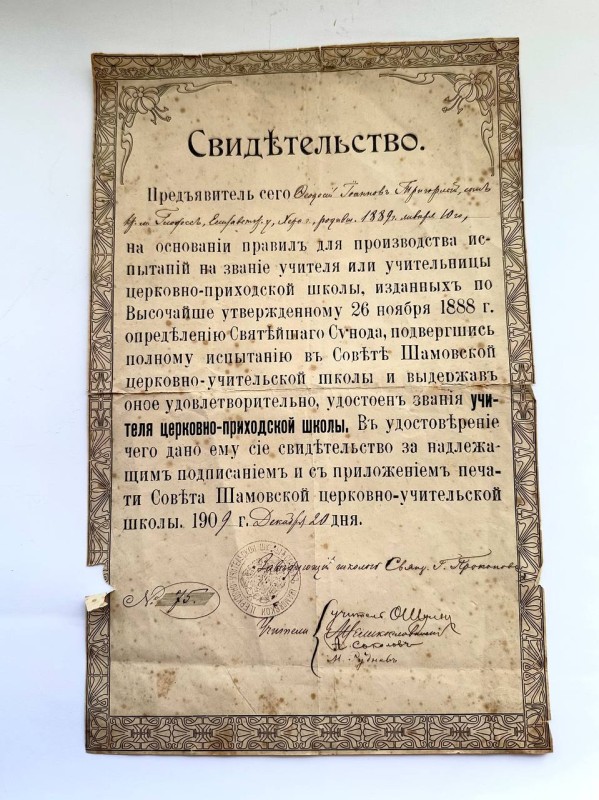 Свидѣтельство.
Предъявитель сего Ѳеодосій Іоанновъ Григор
родивш. 1889 г. января 10 го,
на основаніи правилъ для производства ис-
пытаній на званіе учителя или учительницы
церковно-приходской школы, изданныхъ по
Высочайше утвержденному 26 ноября 1888 г.
опредѣленію Святѣйшаго Сѵнода, подвергшись
полному испытанію въ Совѣтѣ Шамовской
церковно-учительской школы и выдержавъ
оное удовлетворительно, удостоен званія учи-
теля церковно-приходской школы. Въ удостовѣреніе
чего дано ему сіе свидѣтельство за надлежа-
щимъ подписаніемъ и съ приложеніемъ печа-
ти Совѣта Шамовской церковно-учительской
школы. 1909 г. Декабря 20 дня.
Завѣдующій школою Свящ. Г. Прокопов
№ 75.
Учителя
учитель
А. Соколовъ
М.